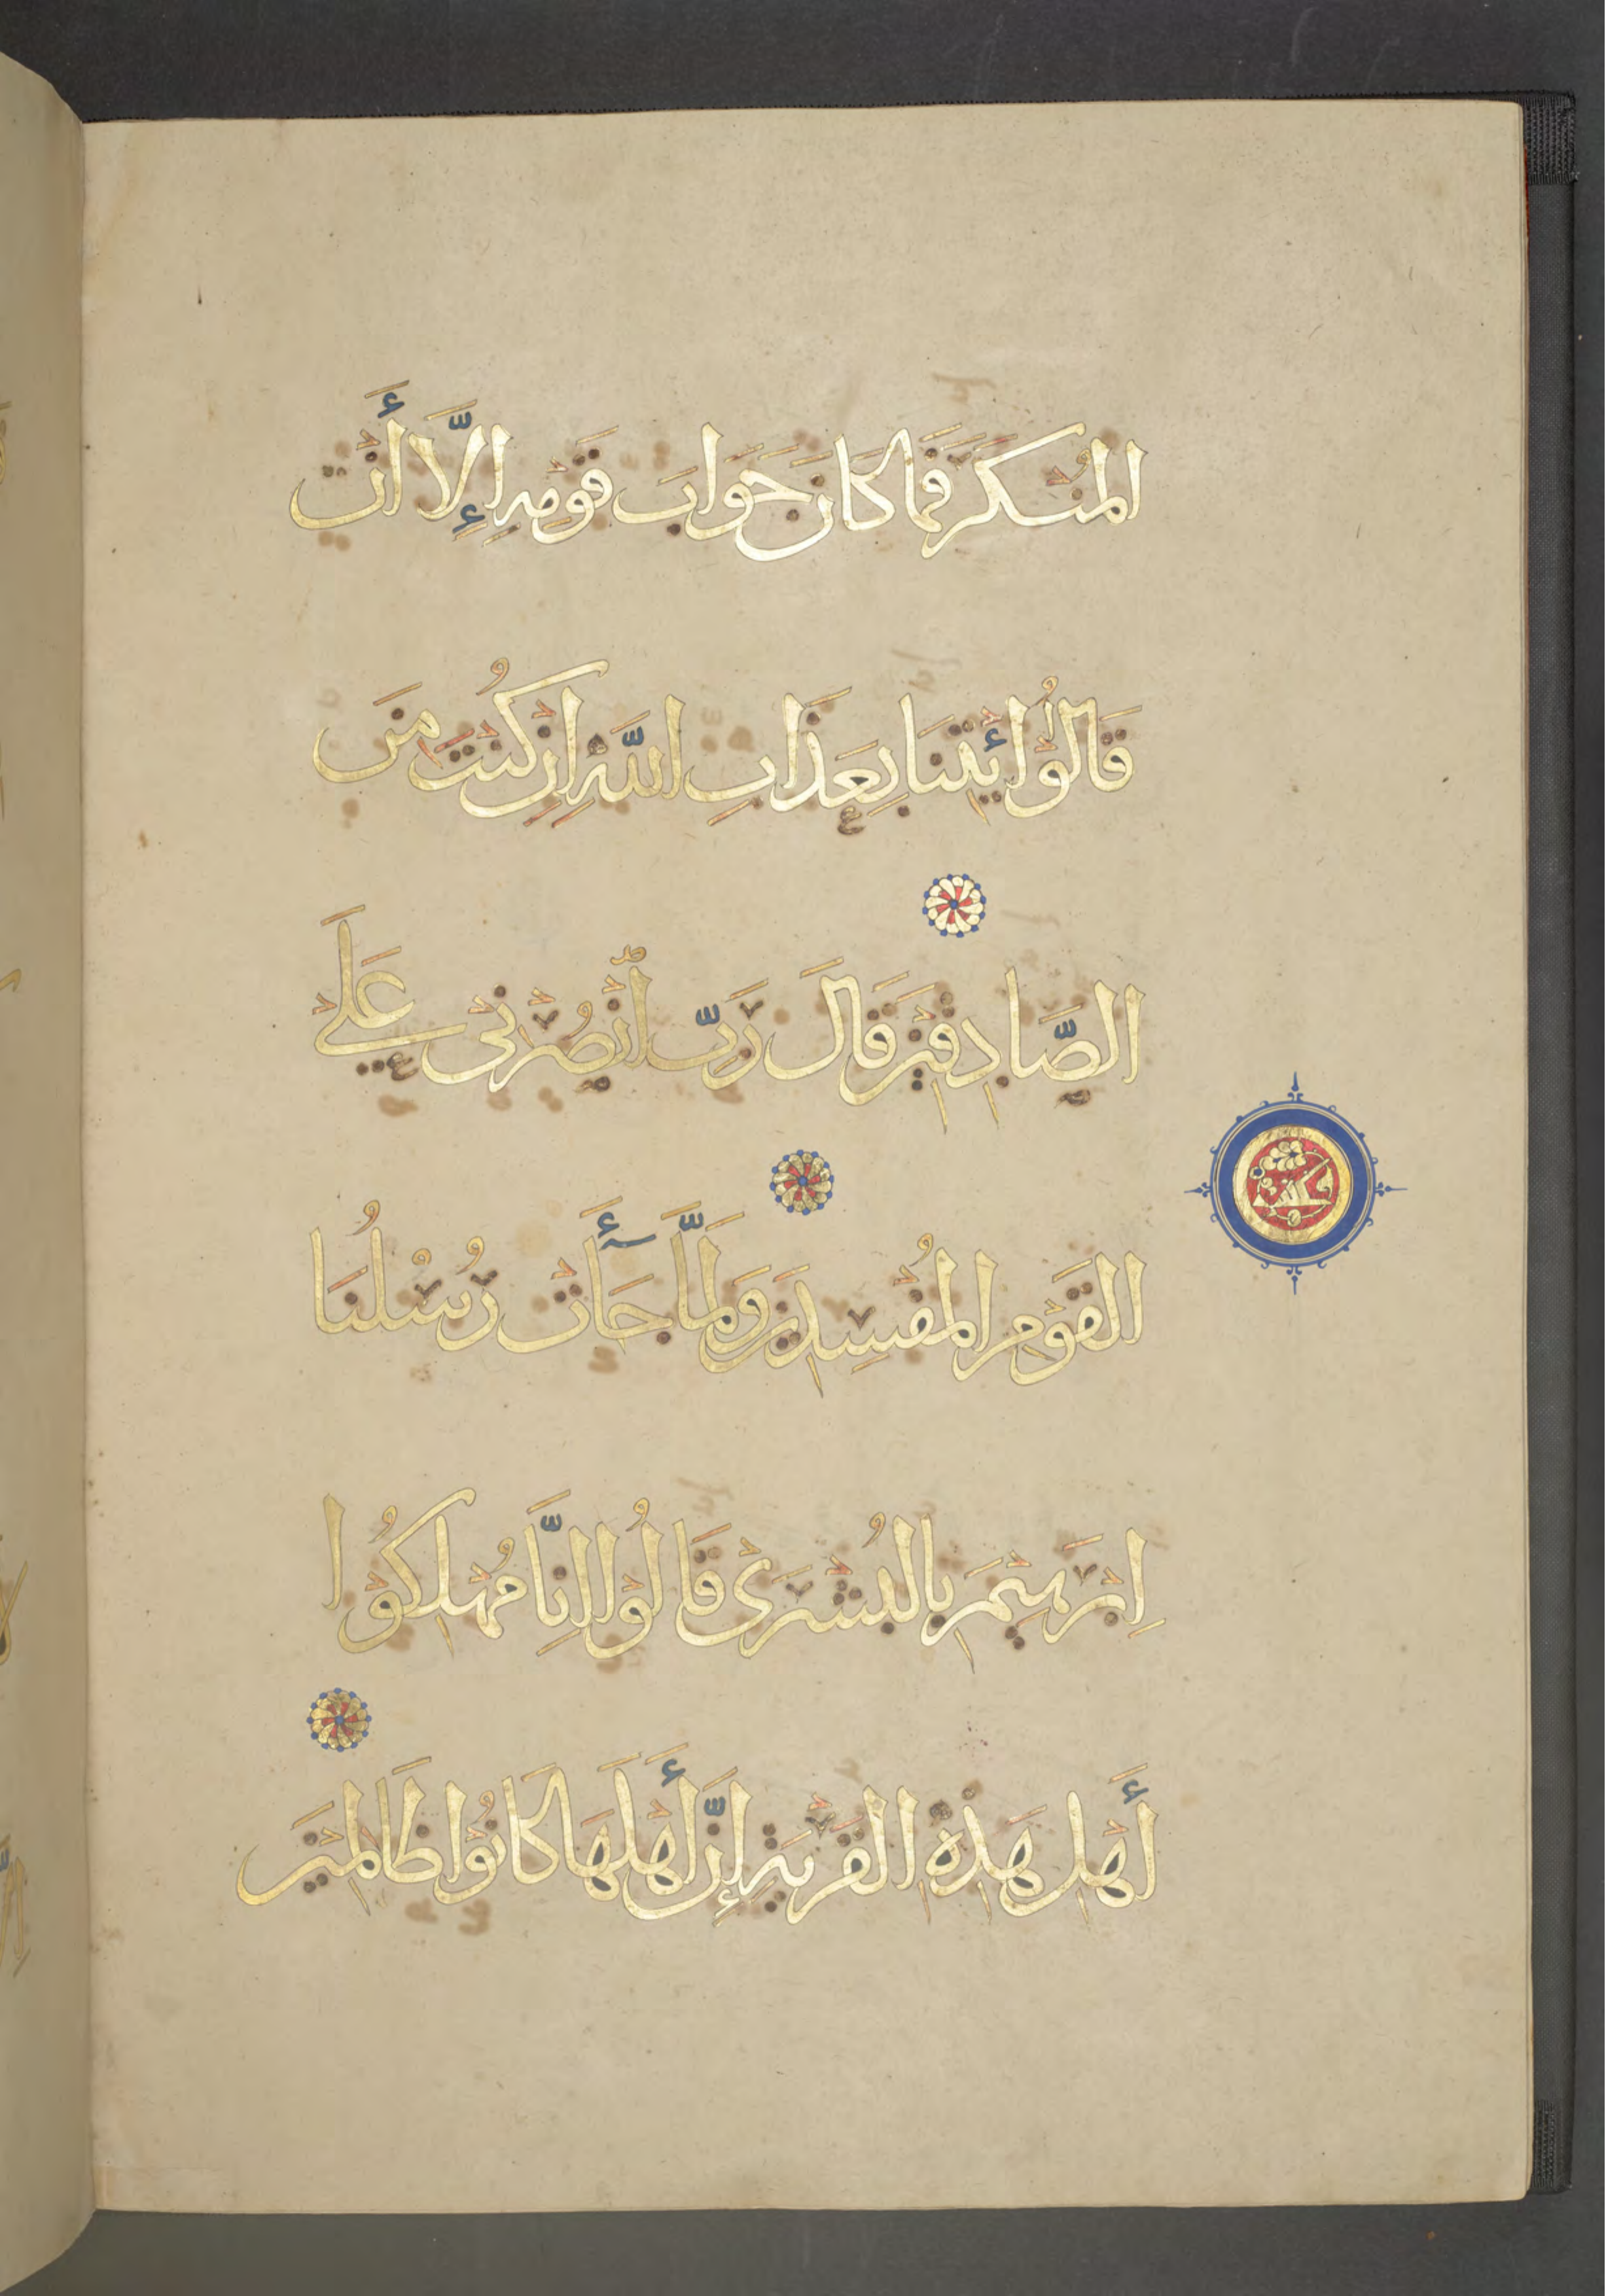 المُنْكَرَ فَمَا كَانَ جَوَابَ قَوْمِهِ إِلَّا أَنْ
قَالُوْا ائْتِنَا بِعَذَابِ اللَّهِ اِنْ كُنْتَ مِنَ
الصَّادِقِيْنَ قَالَ رَبِّ انْصُرْنِيْ عَلَى
الْقَوْمِ الْمُفْسِدِيْنَ وَلَمَّا جَآءَتْ رُسُلُنَا
اِبْرَهِيْمَ بِالْبُشْرَى قَالُوْا اِنَّا مُهْلِكُوْا
أَهْلِ هَذِهِ الْقَرْيَةِ إِنَّ أَهْلَهَا كَانُوْا ظَالِمِيْنَ